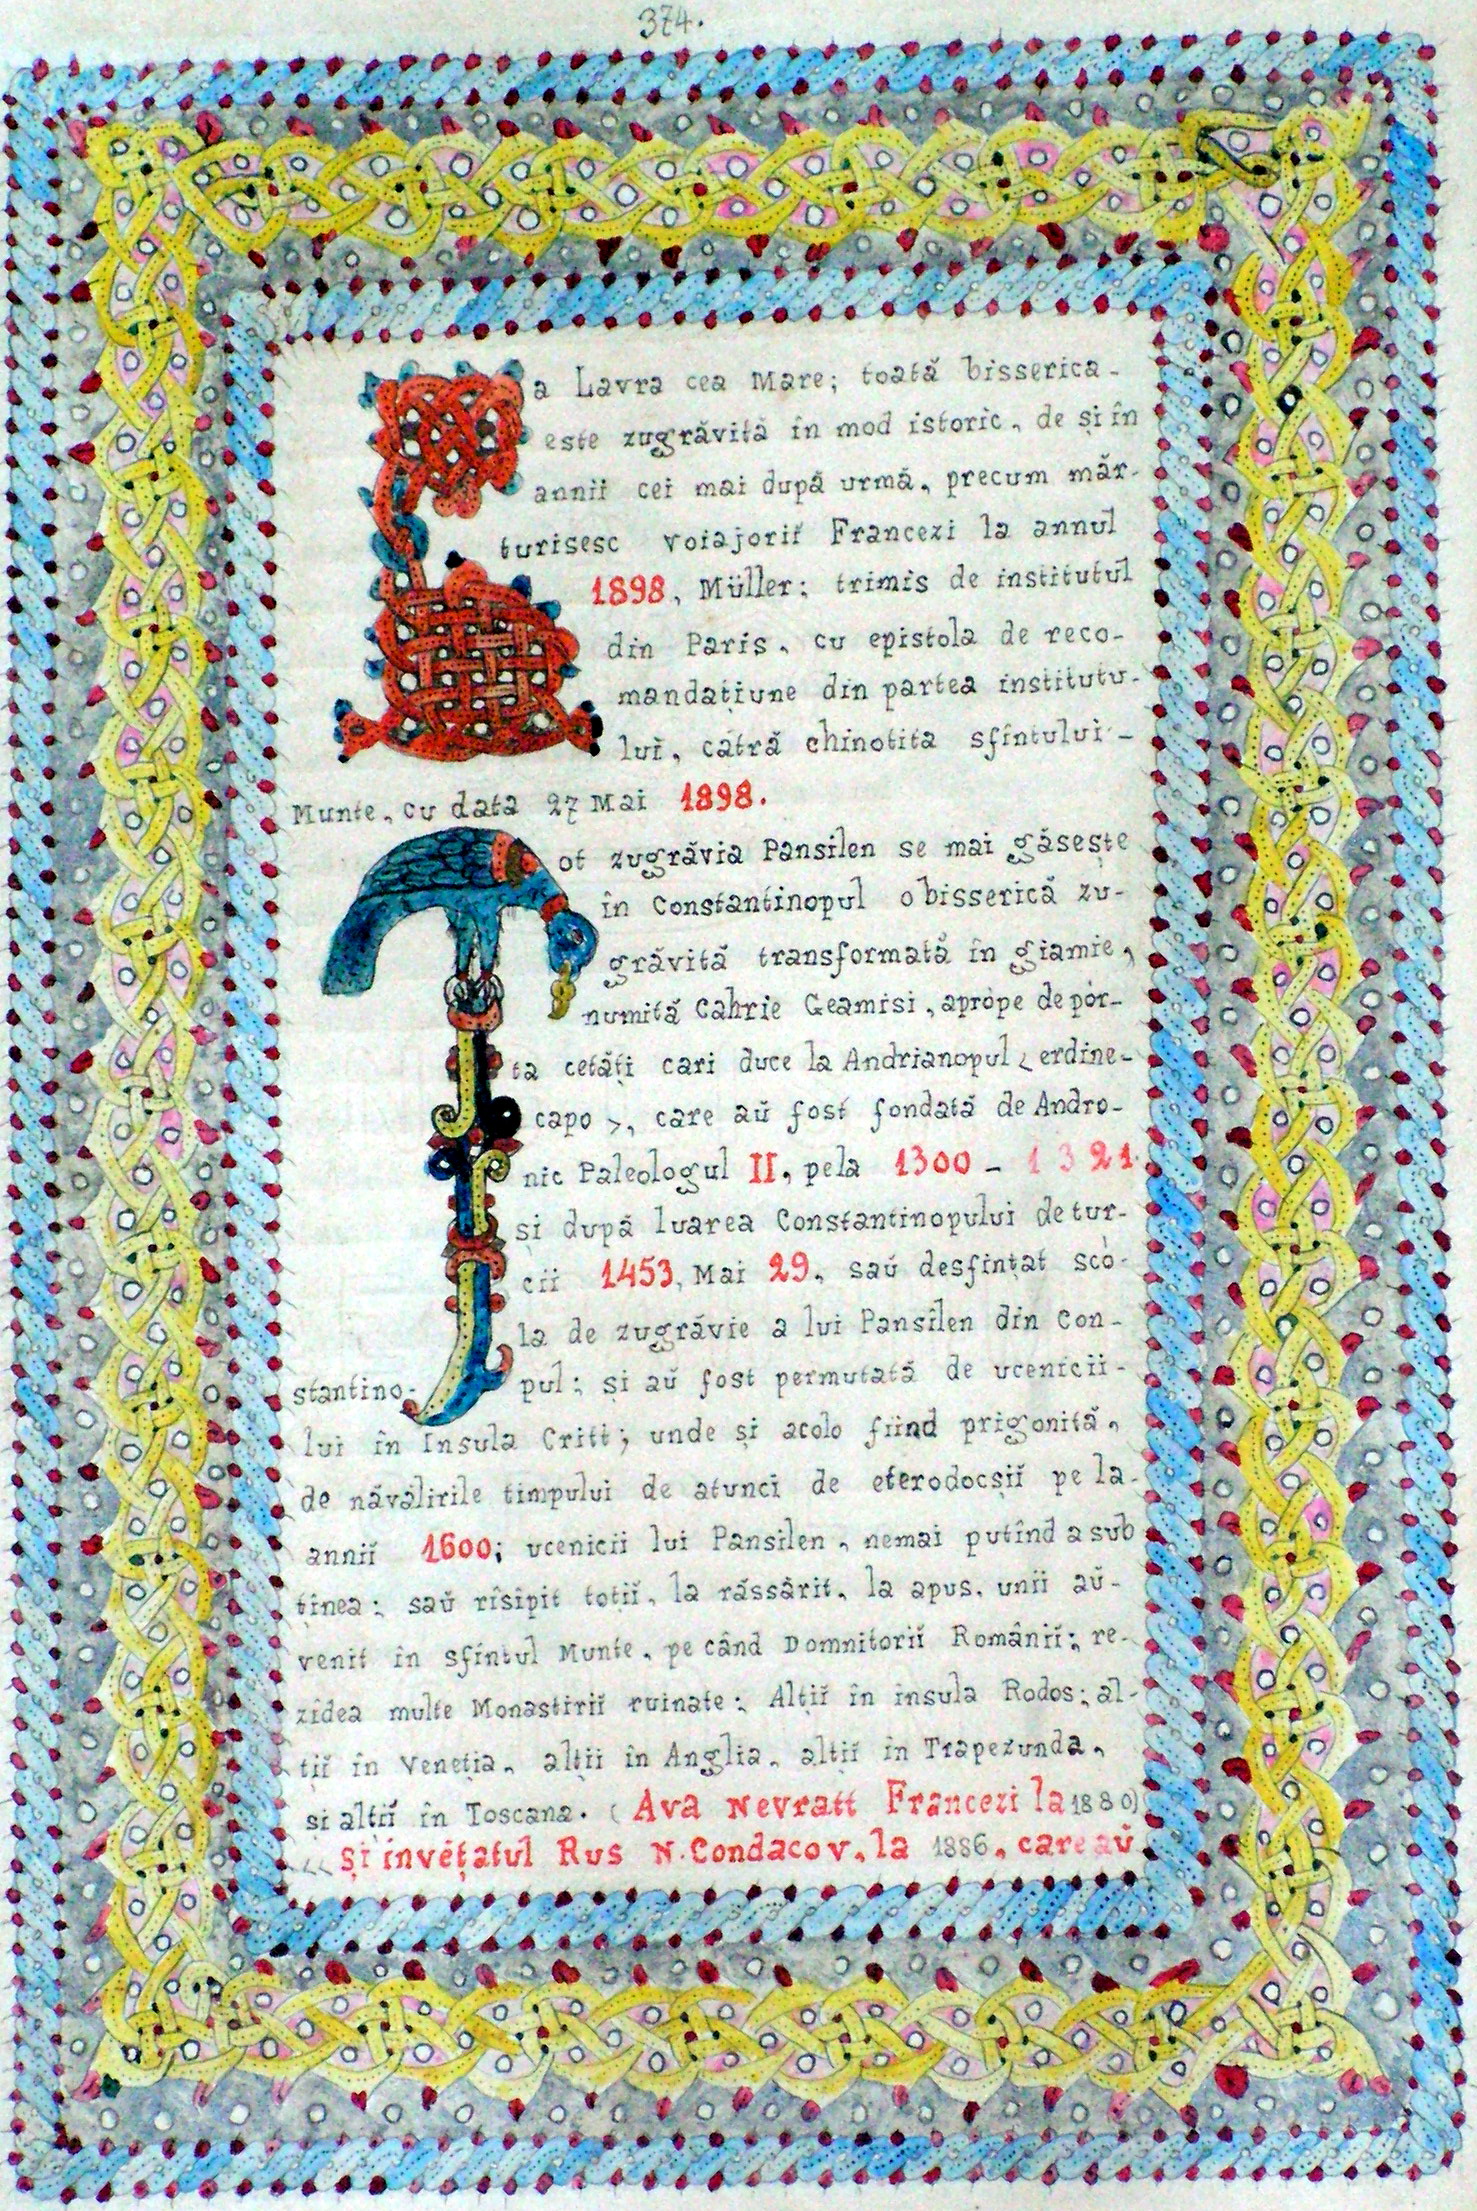 374.
La Lavra cea Mare; toată bisserica-
este zugrăvită în mod istoric, de și în
annii cei mai după urmă, precum măr-
turisesc voiajoriĭ Francezi la annul
1898, Müller; trimis de institutul
din Paris, cu epistola de reco-
mandațiune din partea institutu-
lui, cătră chinotita sfîntului-
Munte, cu data 27 Mai 1898.
Tot zugrăvia Pansilen se mai găsește
în Constantinopul o bisserică zu-
grăvită transformată în giamie,
numită Cahrie Geamisi, aprope de pór-
ta cetăți cari duce la Andrianopul < erdine-
capo >, care aŭ fost fondată de Andro-
nic Paleologul II, pela 1300 - 1321.
și după luarea Constantinopului de tur-
cii 1453, Mai 29, saŭ desfințat scó-
la de zugrăvie a lui Pansilen din Con-
stantino- pul; și aŭ fost permutată de ucenicii-
lui în Insula Criti; unde și acolo fiind prigonită,
de năvălirile timpului de atunci de eterodocșiĭ pe la-
anniĭ 1600; ucenicii lui Pansilen, nemai putînd a sub
ținea; saŭ rîsipit totiĭ, la răssărit, la apus, unii aŭ-
venit în sfîntul Munte, pe când Domnitoriĭ Româniĭ; re-
zidea multe Monastiriĭ ruinate; Alțiĭ în insula Rodos; al-
țiĭ în Veneția, alții în Anglia, altiĭ în Trapezunda,
și altiĭ în Toscana. ( Ava Nevratt Francezi la 1880)
<< Și învéțatul Rus N. Condacov, la 1886, care aŭ